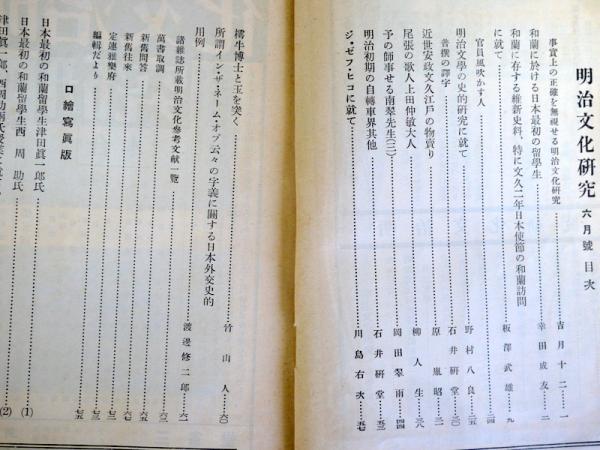 明治文化研究 六月號 目次
事實上の正確を無視せる明治文化研究……吉月十二…一
和蘭に於ける日本最初の留學生……幸田成友…二
和蘭に存する維新史料、特に文久二年日本使節の和蘭訪問
に就て……板澤武雄…九
官員風吹かす人……二四
明治文學の史的研究に就て……野村八良…二五
普撰の譯字……石井研堂…三〇
近世安政文久江戸の物賣り……原胤昭…三一
尾張の歌人上田仲敏大人……柳人生…三八
予の師事せる南翠先生(二)……岡田翠雨…四四
明治初期の自轉車界其他……石井研堂…五三
ジ・ゼフ・ヒコに就て……川島右次…五七
樗牛博士と玉を突く……竹山人…六〇
所謂イン・ザ・ネーム・オブ云々の字義に關する日本外交史的
用例……渡邊修二郎…六一
諸雜誌所載明治文化參考文獻一覽……六二
萬書取調……六五
新舊問答……六六
新舊往來……七二
定連雅樂府……七三
編輯だより……七五
口繪寫眞版
日本最初の和蘭留學生津田眞一郎氏……(1)
日本最初の和蘭留學生西周助氏……(2)